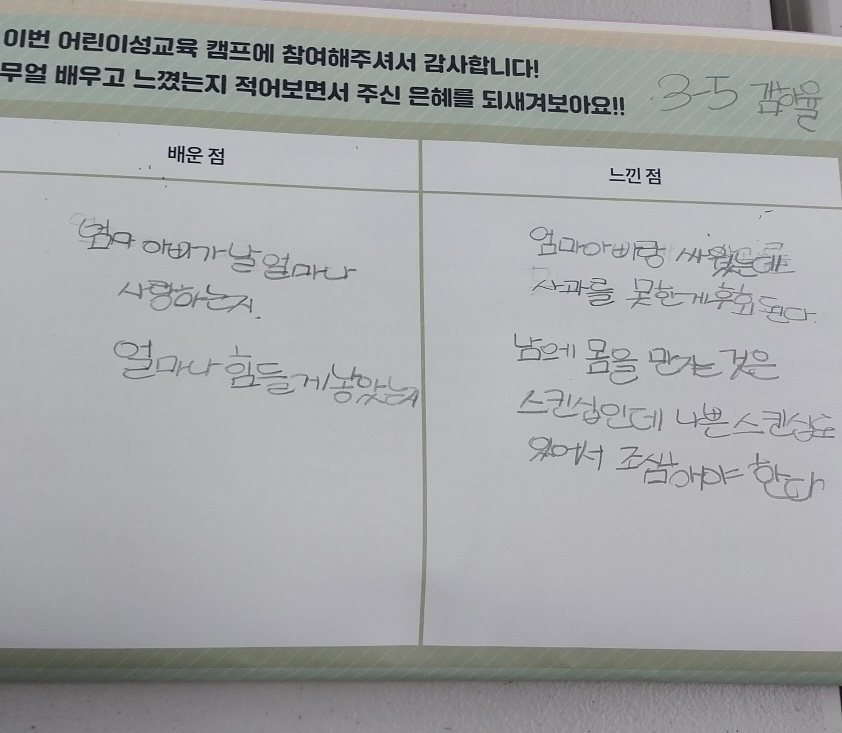 이번 어린이성교육 캠프에 참여해주셔서 감사합니다!
무얼 배우고 느꼈는지 적어보면서 주신 은혜를 되새겨보아요!!
3-5 김하율
배운 점
엄마 아빠가 날 얼마나
사랑하는지.
얼마나 힘들게 낳았는지
느낀 점
엄마아빠랑 싸웠는데
사과를 못한게 후회된다.
남에 몸을 만지는 것은
스킨십인데 나쁜스킨십도
있어서 조심해야 한다